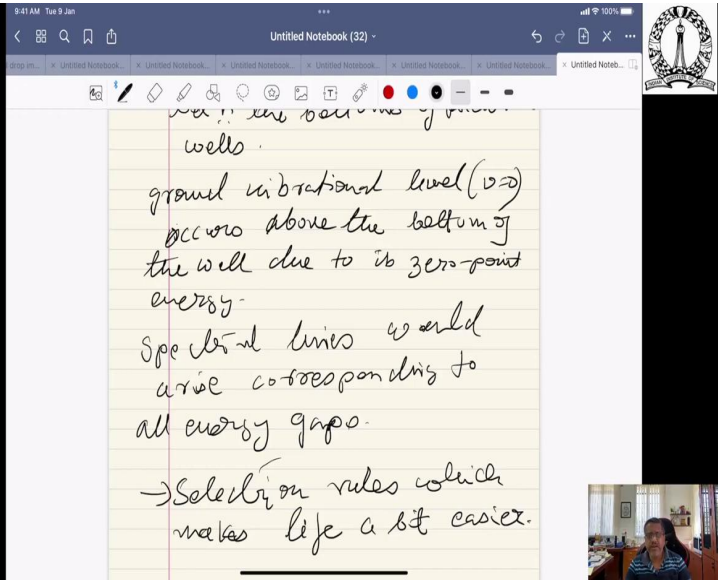 9:41 AM Tue 9 Jan
100%
Untitled Notebook (32)
Untitled Notebook... × Untitled Notebook... × Untitled Notebook... × Untitled Notebook... × Untitled Notebook... × Untitled Noteb...
the bottoms of
wells.
ground vibrational level (v=0)
occurs above the bottom of
the well due to its zero-point
energy-
Spectral lines would
arise corresponding to
all energy gaps.
→ Selection rules which
makes life a bit easier.